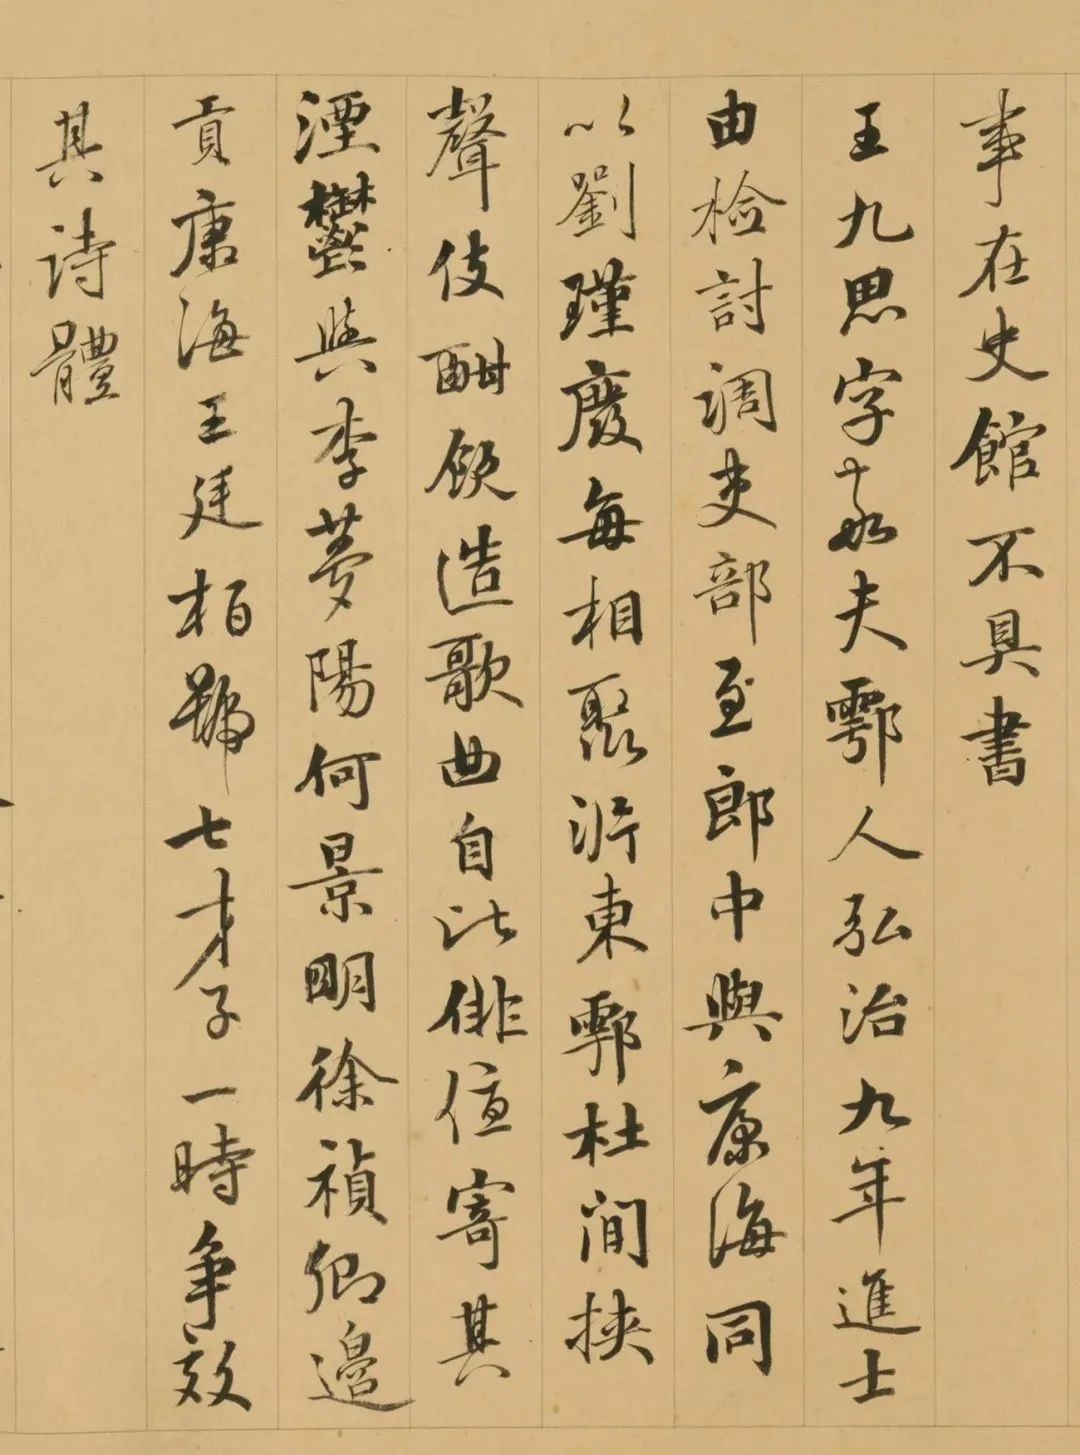 事在史館不具書
王九思字敬夫鄠人弘治九年進士
由檢討調吏部至郎中與康海同
以劉瑾廢每相聚沜東鄠杜間挾
聲伎酣飲造歌曲自比俳優寄其
湮鬱與李夢陽何景明徐禎卿邊
貢康海王廷相號七才子一時爭效
其詩體